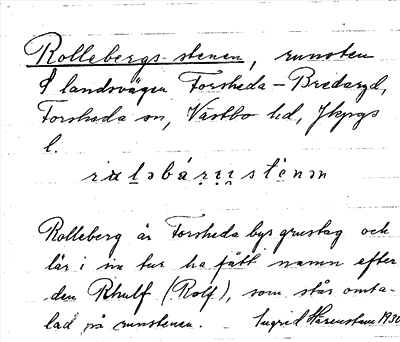 Rollebergs-stenen, runsten
å landsvägen Forsheda – Bredaryd,
Forsheda sn, Västbo hd, Jkpgs
l.
Rolleberg är Forsheda bys grustag och
lär i sin tur ha fått namn efter
den Rhulf (Rolf), som står omta-
lad på runstenen. Ingrid Härenstam 1930